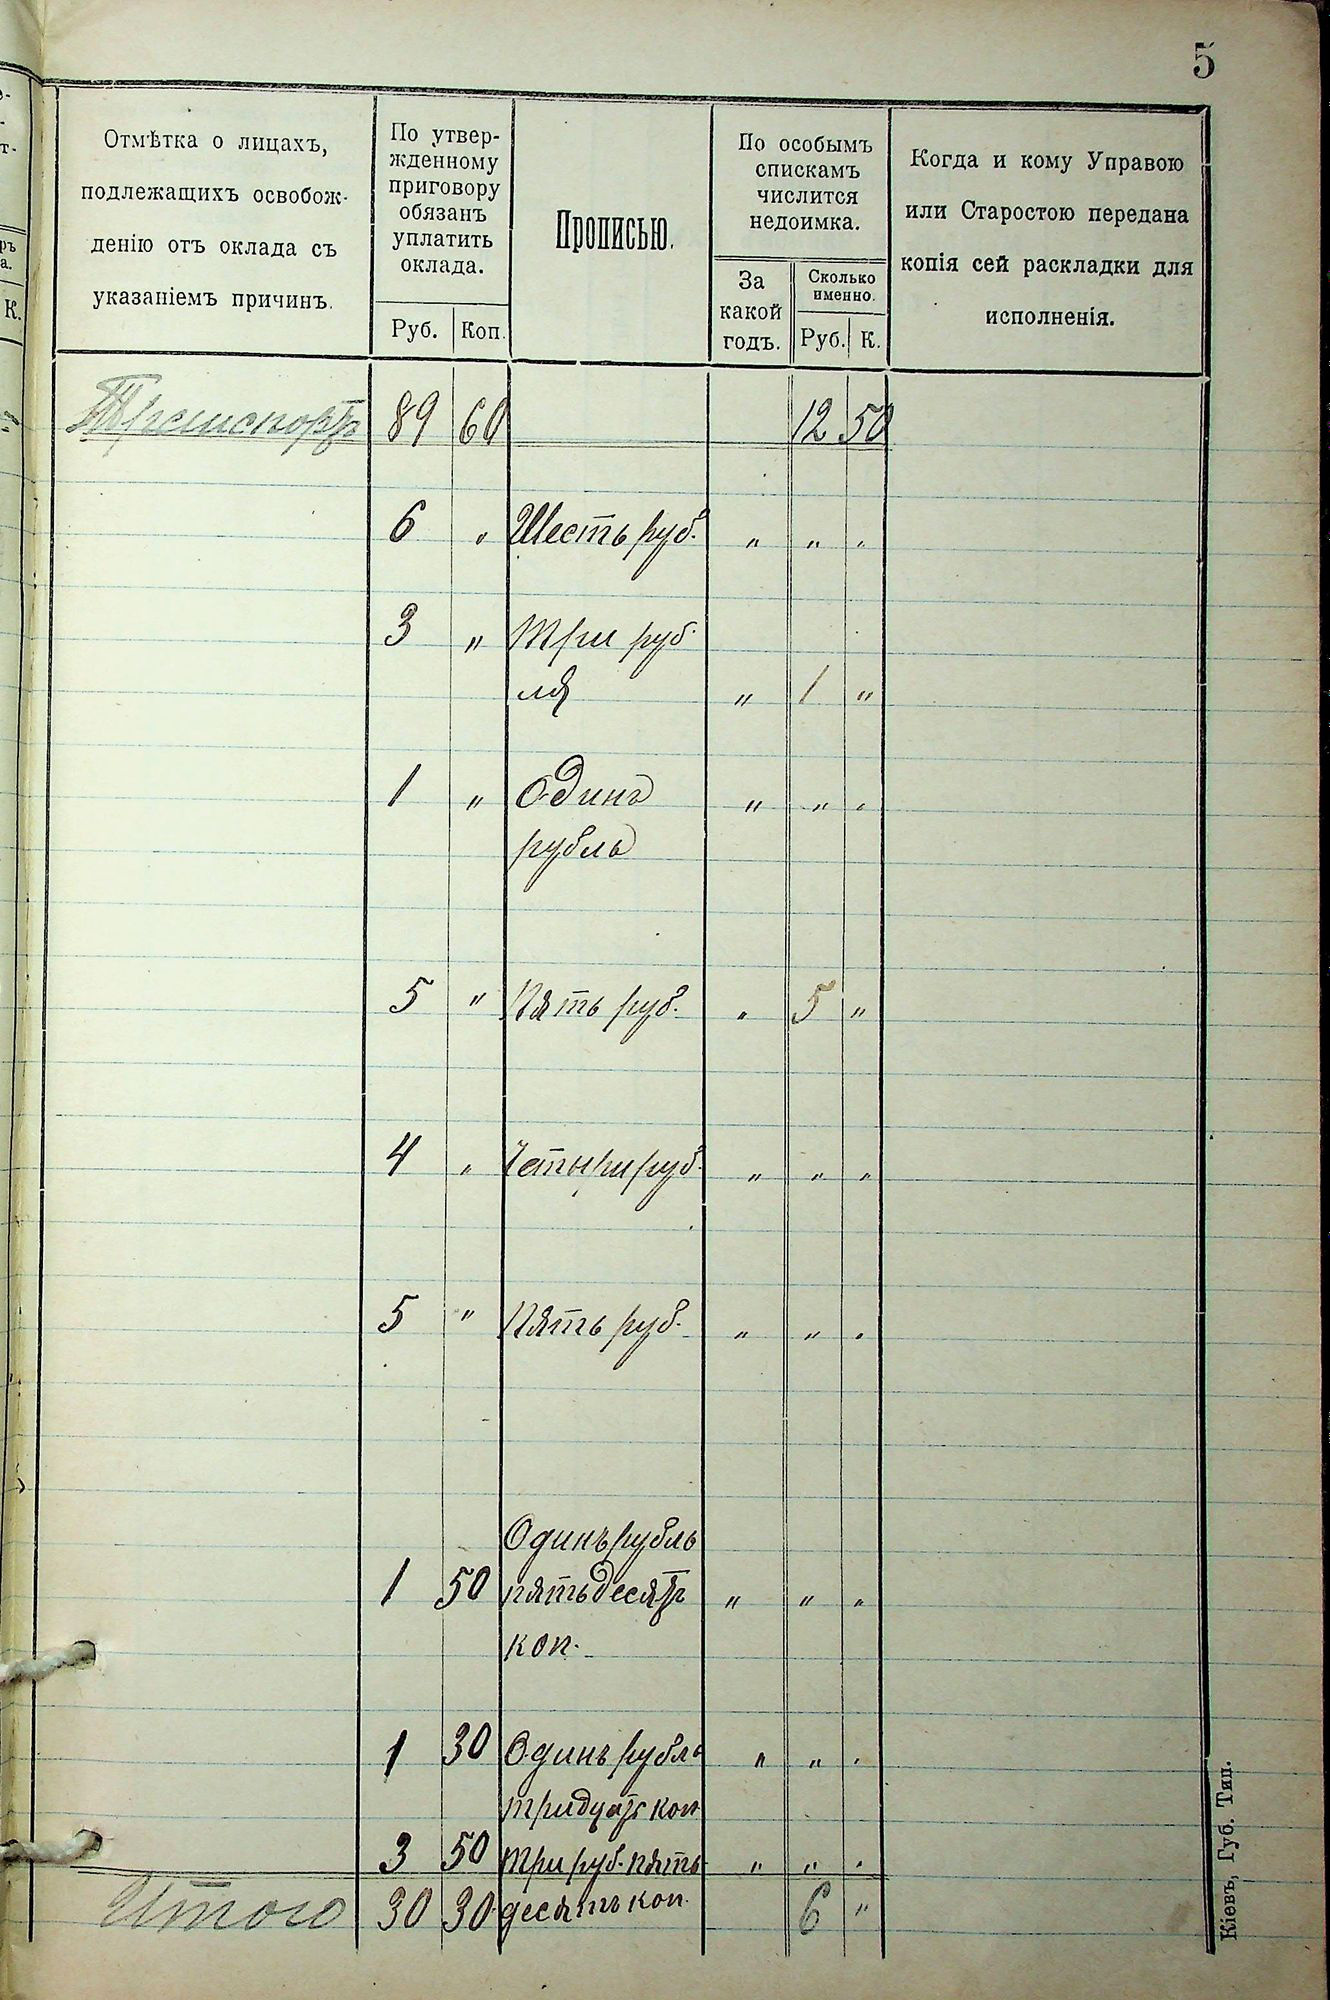 5
Отмѣтка о лицахъ,
подлежащихъ освобож-
денію отъ оклада съ
указаніемъ причинъ.
По утвер-
жденному
приговору
обязанъ
уплатить
оклада.
Руб. Коп.
Прописью.
По особымъ
спискамъ
числится
недоимка.
За
какой
годъ.
Сколько
именно.
Руб. К.
Когда и кому Управою
или Старостою передана
копія сей раскладки для
исполненія.
Транспортъ 89 60 12 50
6 „ Шесть руб. „ „ „
3 „ Три руб-
ля „ 1 „
1 „ Одинъ „ „ „
рубль
5 „ Пять руб. „ 5 „
4 „ Четыри руб. „ „ „
5 „ Пять руб. „ „ „
Одинъ рубль
1 50 пятьдесятъ „ „ „
коп.
1 30 Одинъ рубль „ „ „
тридцать коп
3 50 три руб. пять- „ „ „
Итого 30 30 десятъ коп. 6 „
Кіевъ, Губ. Тип.